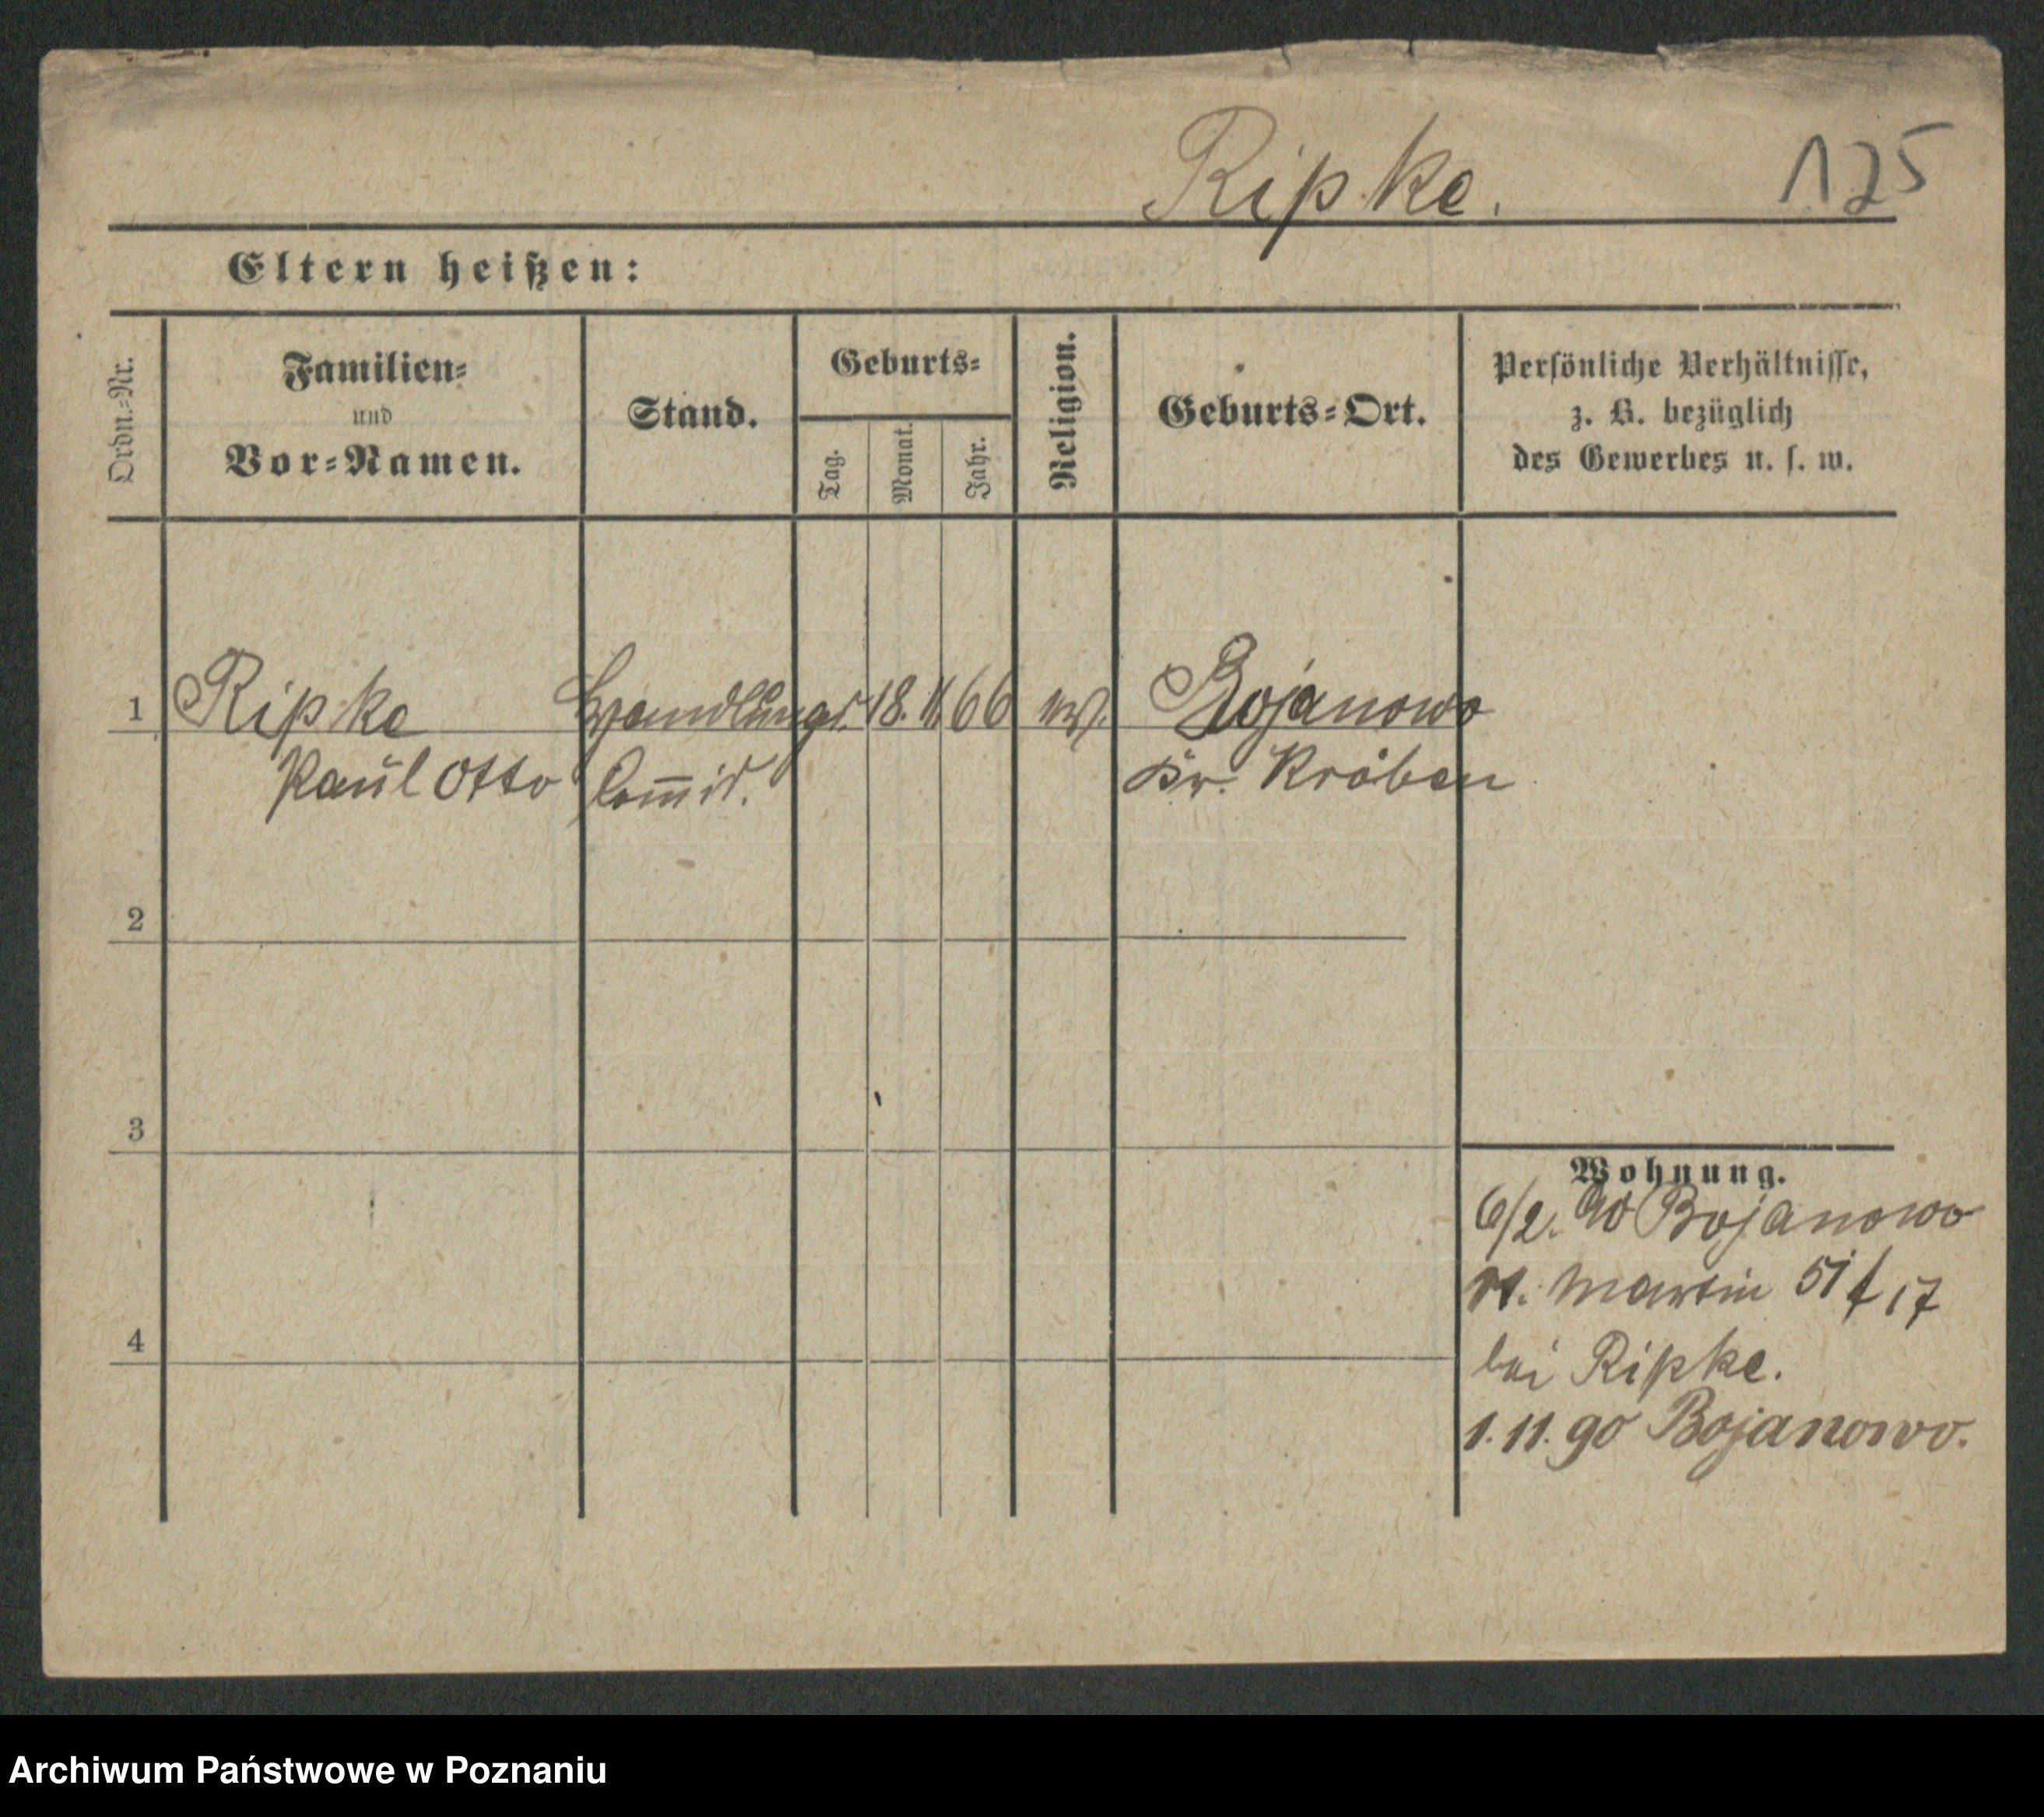 Ripke.
125
Eltern heißen:
Ordn.-Nr.
Familien-
und
Vor-Namen.
Stand.
Geburts-
Tag.
Monat.
Jahr.
Religion.
Geburts-Ort.
Persönliche Verhältnisse,
z. B. bezüglich
des Gewerbes u. s. w.
1 Ripke Handlungs 18. 11 66 ev. Bojanowo
Paul Otto Commis. Kr. Kröben
2
3
4
Wohnung.
6/2. 90 Bojanowo
St. Martin 51 f 17
bei Ripke.
1. 11. 90 Bojanowo.
Archiwum Państwowe w Poznaniu